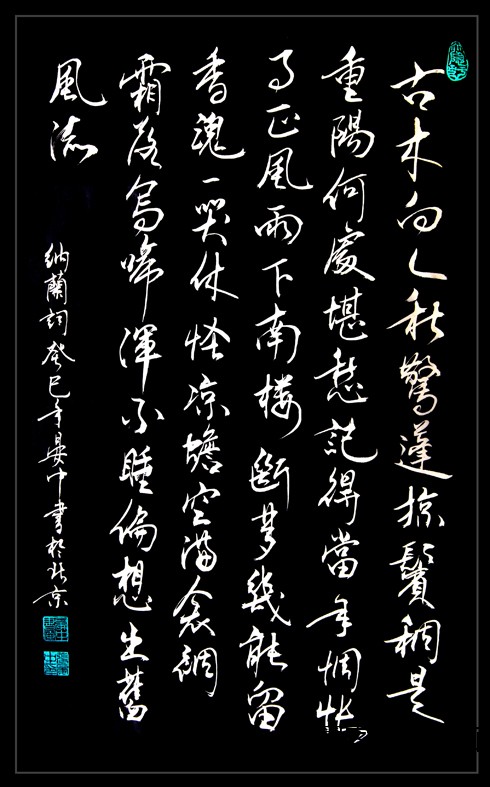 古木向人秋驚蓬掠鬢稠是
重陽何處堪愁記得當年惆悵
事正風雨下南楼斷夢幾能留
香魂一哭休怪凉蟾空滿衾裯
霜落烏啼渾不睡偏想出舊
風流
納蘭詞癸巳年晏中書於北京